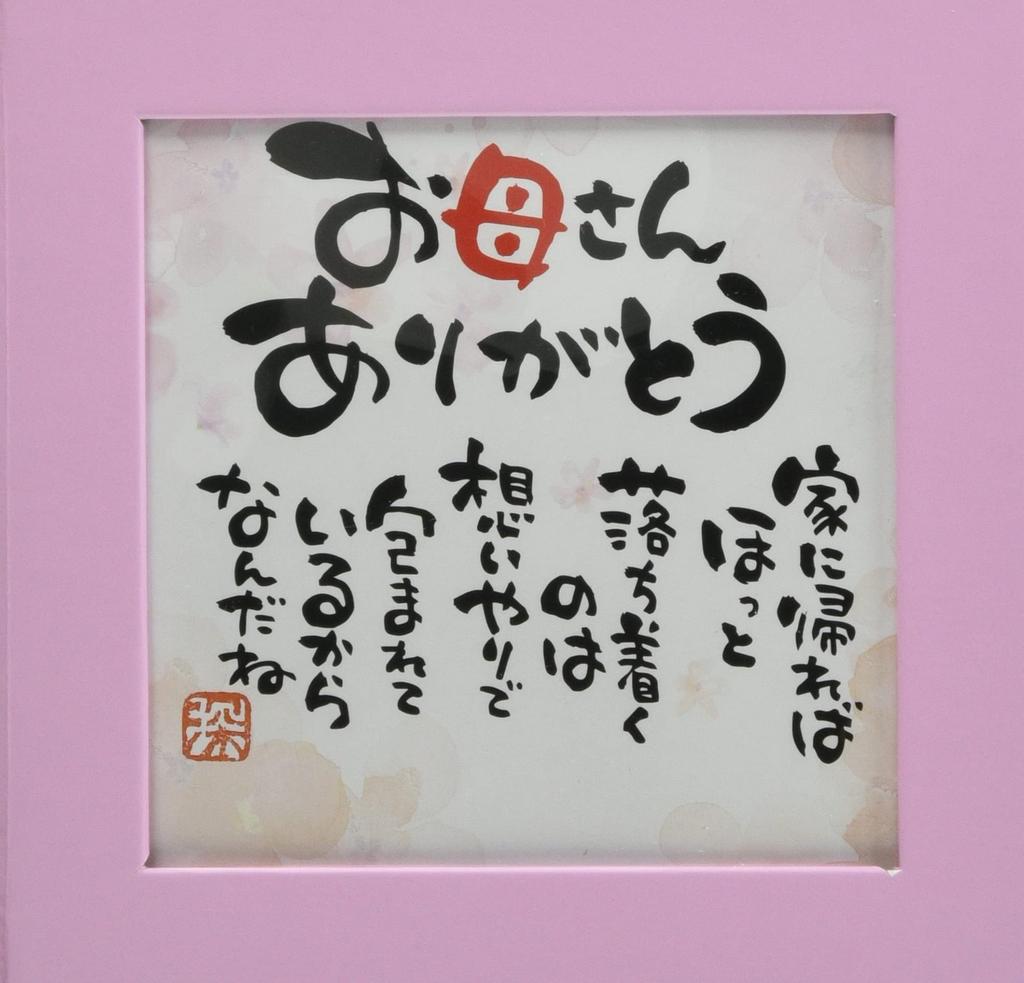 お母さん
ありがとう
家に帰れば
ほっと
落ち着く
のは
想いやりで
包まれて
いるから
なんだね